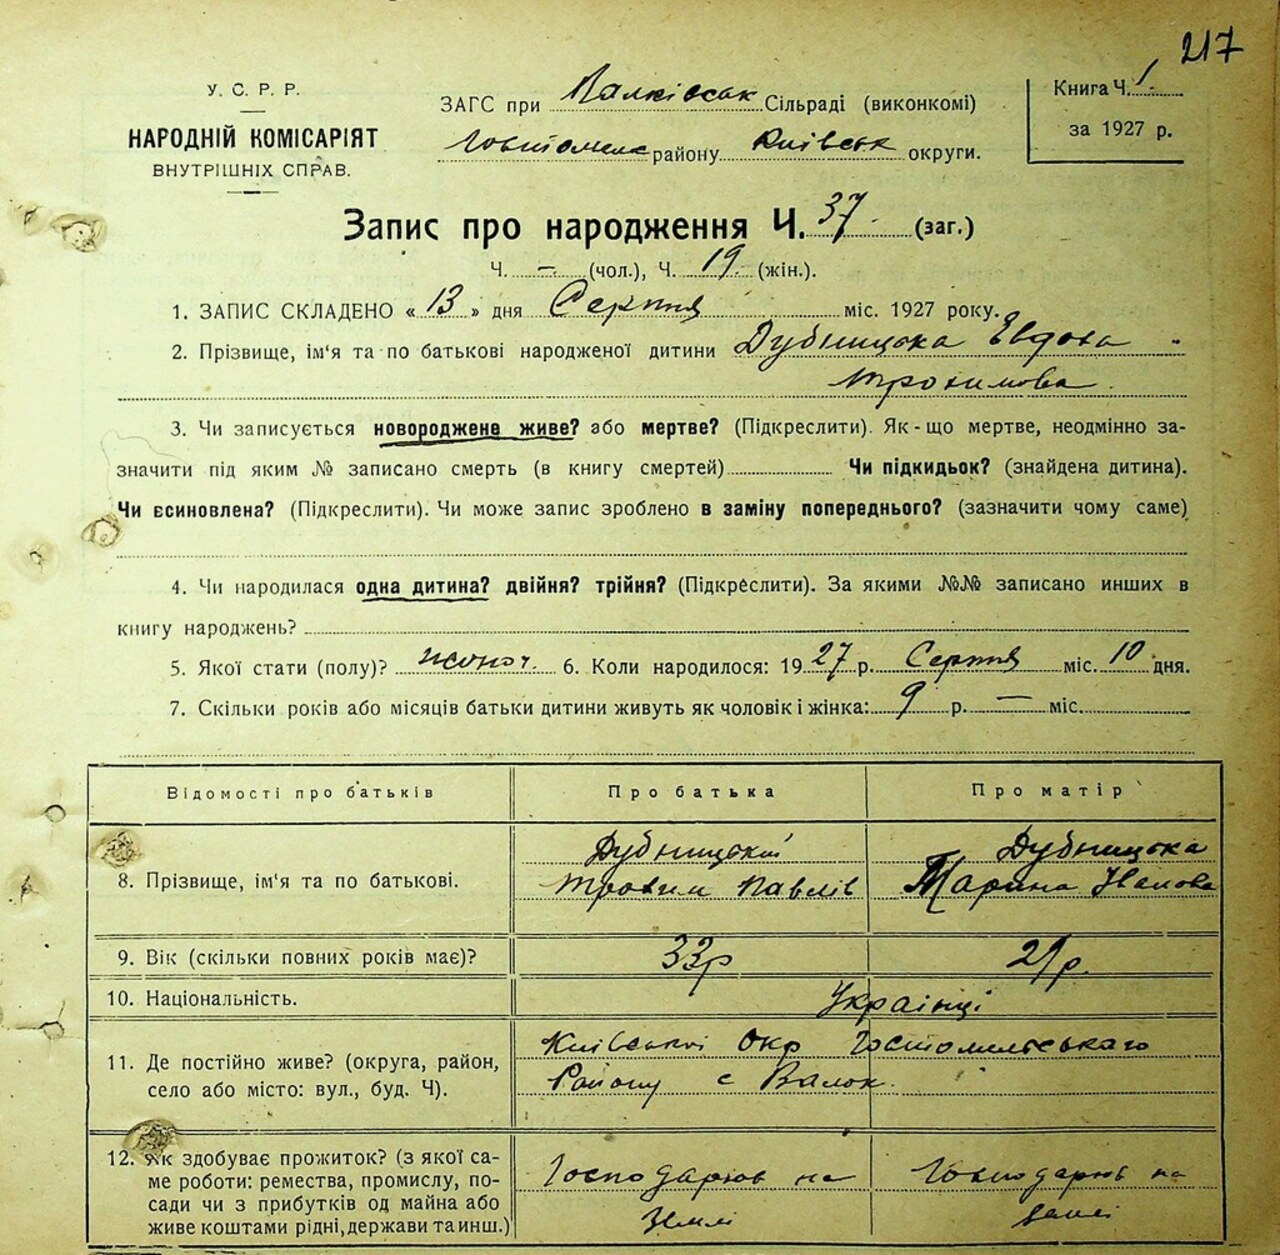 217
У. С. Р. Р.
НАРОДНІЙ КОМІСАРІЯТ
ВНУТРІШНІХ СПРАВ.
ЗАГС при Валківськ Сільраді (виконкомі)
Гостомельс району Київськ округи.
Книга Ч. 1
за 1927 р.
Запис про народження Ч. 37 (заг.)
Ч. — (чол.), Ч. 19 (жін.).
1. ЗАПИС СКЛАДЕНО « 13 » дня Серпня міс. 1927 року.
2. Прізвище, ім'я та по батькові народженої дитини Дубницька Евдоха
Трохимова
3. Чи записується новороджене живе? або мертве? (Підкреслити). Як-що мертве, неодмінно за-
значити під яким № записано смерть (в книгу смертей) Чи підкидьок? (знайдена дитина).
Чи єсиновлена? (Підкреслити). Чи може запис зроблено в заміну попереднього? (зазначити чому саме)
4. Чи народилася одна дитина? двійня? трійня? (Підкреслити). За якими №№ записано инших в
книгу народжень?
5. Якої стати (полу)? жоноч. 6. Коли народилося: 1927 р. Серпня міс. 10 дня.
7. Скільки років або місяців батьки дитини живуть як чоловік і жінка: 9 р. — міс.
Відомості про батьків Про батька Про матір
8. Прізвище, ім'я та по батькові. Дубницький Дубницька
Трохим Павлів Марина Іванова
9. Вік (скільки повних років має)? 33р 29р.
10. Національність. Українці
11. Де постійно живе? (округа, район, Київської Окр Гостомильського
село або місто: вул., буд. Ч). Району с Валок.
12. Як здобуває прожиток? (з якої са-
ме роботи: ремества, промислу, по- Господарюв на Господарюв на
сади чи з прибутків од майна або землі землі
живе коштами рідні, держави та инш.)